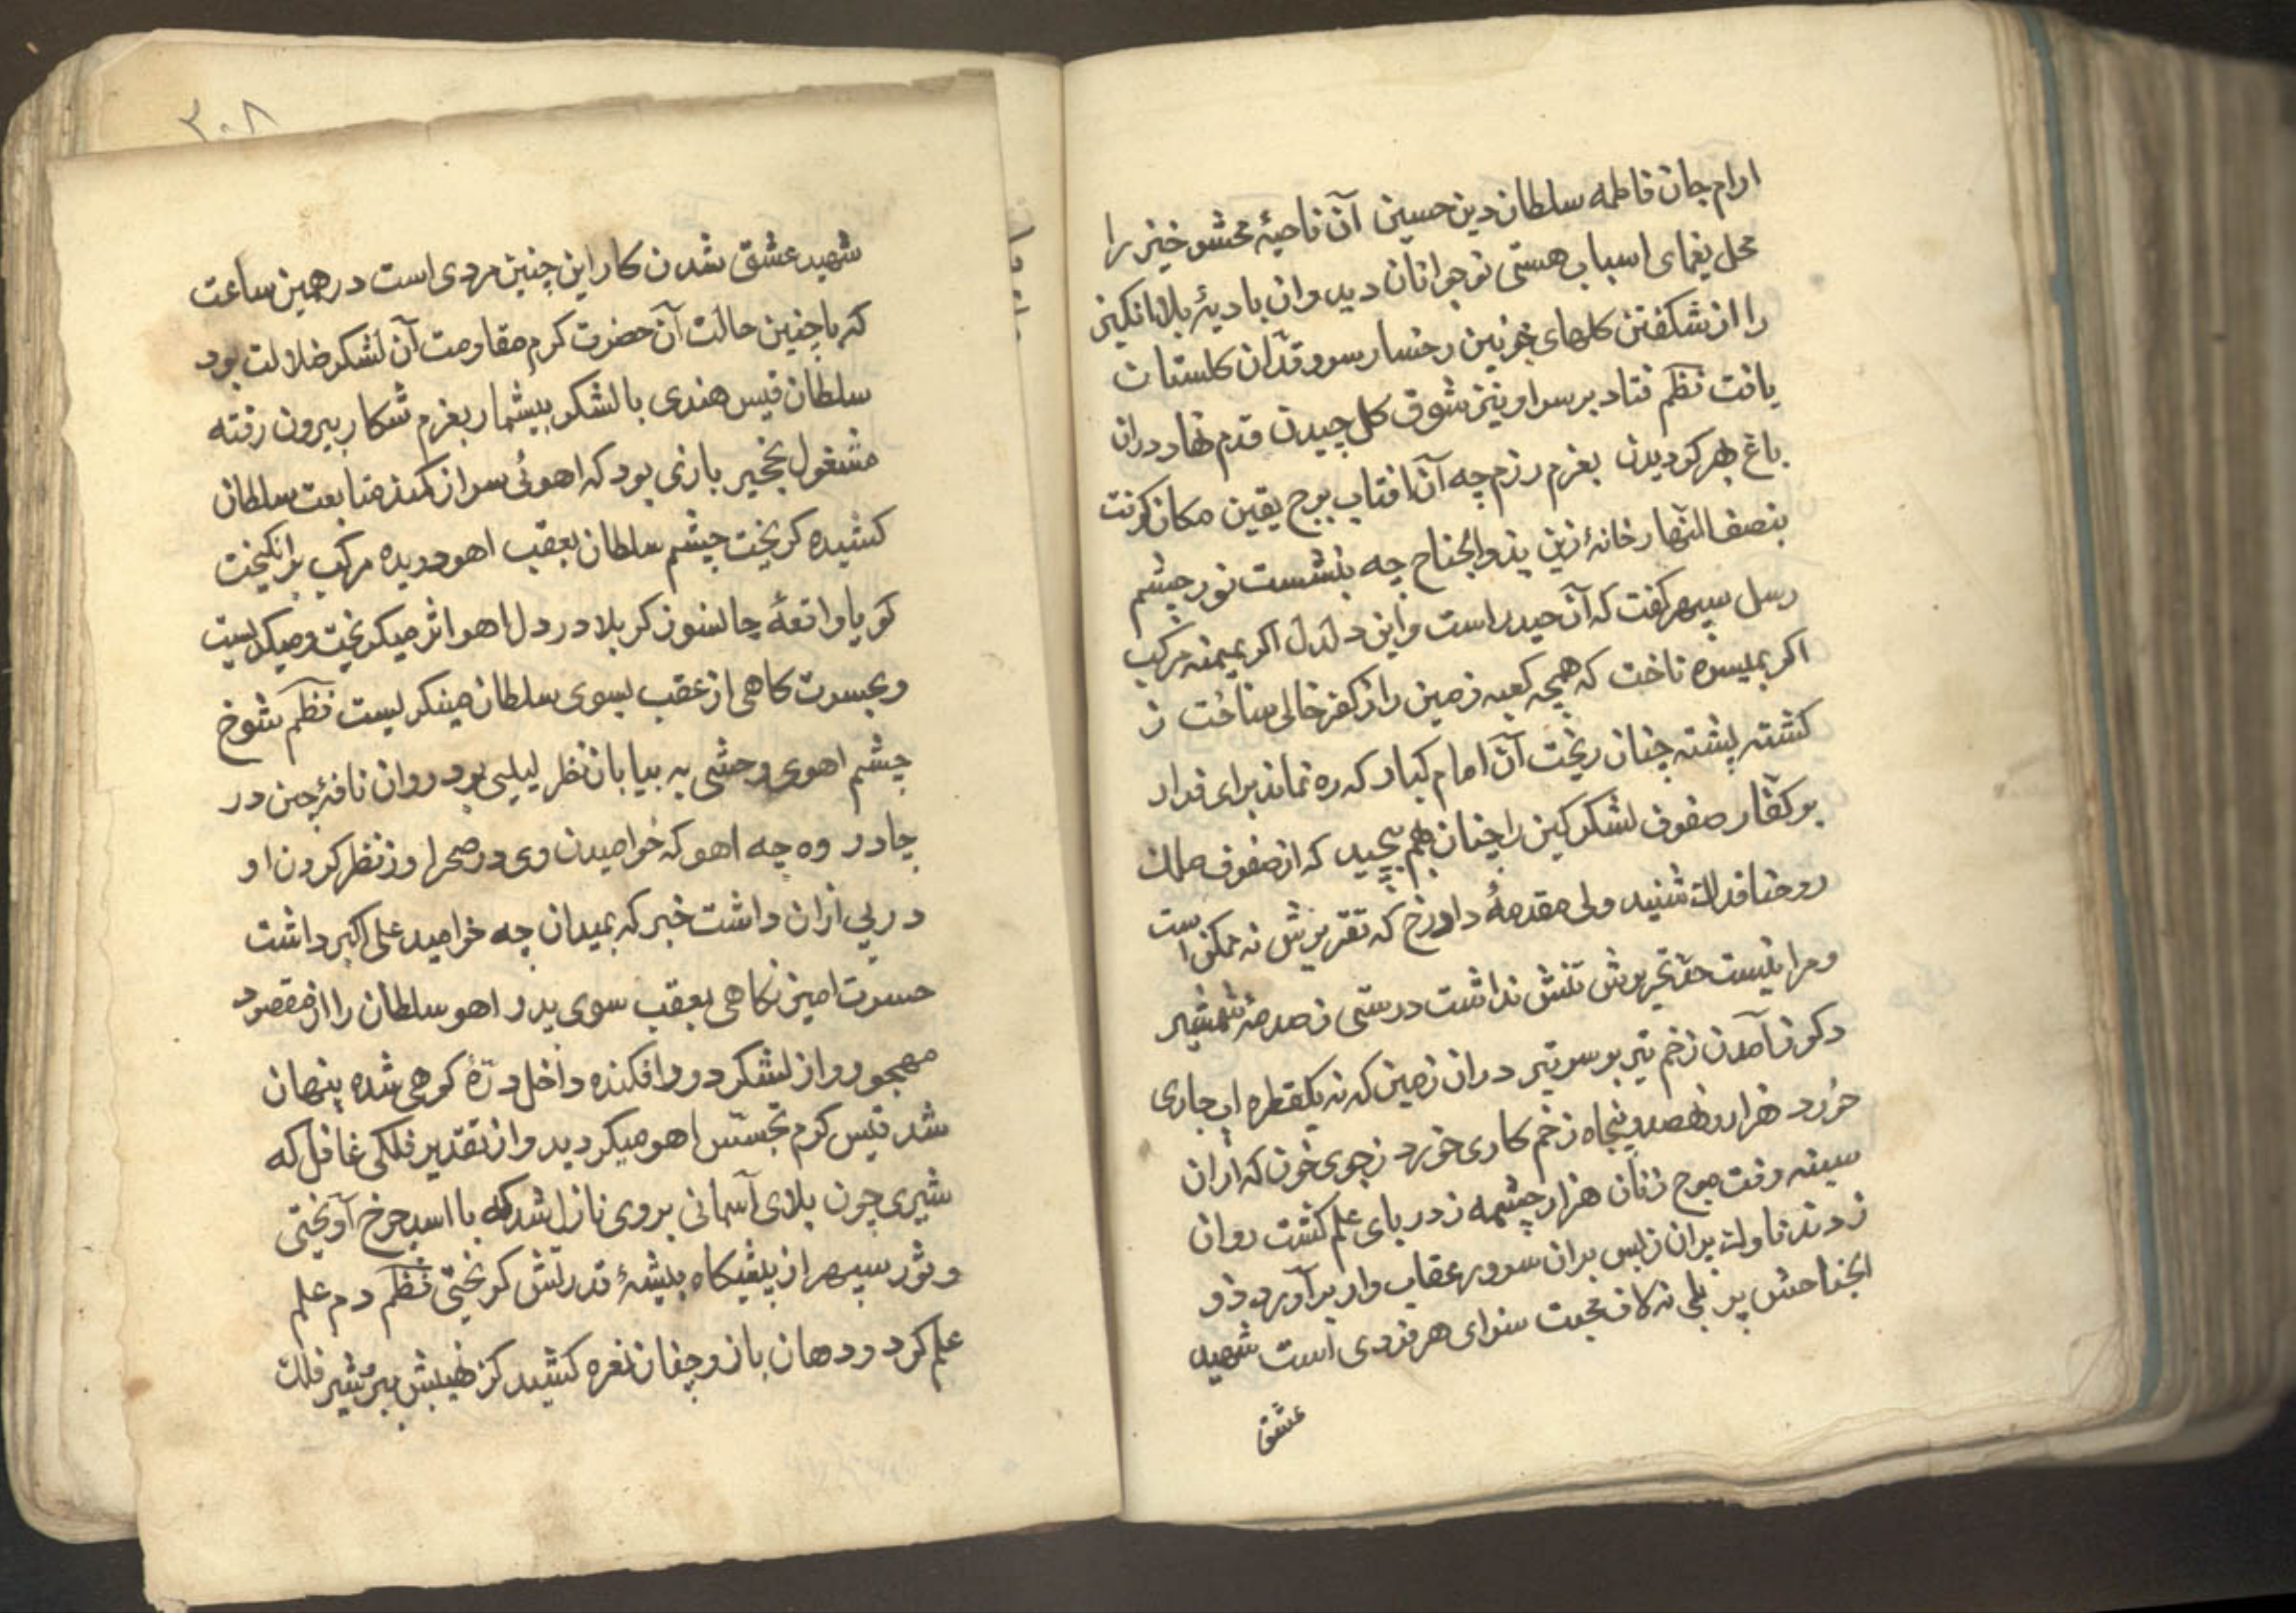 ارام جان فاطمه سلطان دین حسین آن ناحیهٔ محشر خیز را
محل یغمای اسباب هستی نوجوانان دید وان بادیهٔ بلا انکیز
را از شکفتن کلهای خونین رخسار سرو قدّان کلستان
یافت نظم فتاد بر سر او نیز شوق کل چیدن قدم نهاد دران
باغ بهر کردیدن بعزم رزم چه آن افتاب برج یقین مکان کرفت
بنصف النهار خانهٔ زین بذوالجناح چه بنشست نور چشم
رسل سپهر کفت که آن حیدر است و این دلدل اکر بمیمنه مرکب
اکر بمیسره تاخت که همچه کعبه زمین را ز کفر خالی ساخت ز
کشته پشته چنان ریخت آن امام کبار که ره نماند برای فرار
بر کفّار صفوف لشکر کین را چنان بهم پیچید که از صفوف ملک
روحنا فداک شنید ولی مقدمهٔ داورخ که تقریرش نه ممکن است
و مرا نیست حدّ تحریرش تنش نداشت درستی ز صدمهٔ شمشیر
دکر ز آمدن زخم تیر بر سر تیر دران زمین که نه یکقطره اب جاری
خورد هزار و نهصد و پنجاه زخم کاری خورد ز جوی خون که ازان
سینه رفت موج زنان هزار چشمه ز دریای علم کشت روان
زدند ناوک بران ز بس بران سرور عقاب وار برآورد ذو
الجناحش پر بلی نه لاف محبت سزای هر فردی است شهید
عشق
۳۰۸
شهید عشق شدن کار این چنین مردی است در همین ساعت
که باچنین حالت آن حضرت کرم مقاومت آن لشکر ضلالت بود
سلطان قیس هندی با لشکر بیشمار بعزم شکار بیرون رفته
مشغول نخجیر بازی بود که اهوئی سر از کمند متابعت سلطان
کشیده کریخت چشم سلطان بعقب اهو دویده مرکب برانکیخت
کویا واقعهٔ جانسوز کربلا در دل اهو اثر میکریخت و میکریست
و بحسرت کاهی از عقب بسوی سلطان مینکریست نظم شوخ
چشم اهوی وحشی به بیابان نظر لیلیی بود روان نافهٔ چین در
چادر وه چه اهو که خرامیدن وی در صحرا وز نظر کردن او
در پی ازان داشت خبر که بمیدان چه خرامید علی اکبر داشت
حسرت امیز نکاهی بعقب سوی پدر اهو سلطان را از مقصود
مهجور و از لشکر دور افکنده داخل درّهٔ کوهی شده پنهان
شد قیس کرم تجسّس اهو میکردید و از تقدیر فلکی غافل که
شیری چون بلای آسمانی بروی نازل شد که با اسد چرخ آویختی
و ثور سپهر از پیشکاه بیشهٔ قدرتش کریختی نظم دم علم
علم کرد و دهان باز و چنان نعره کشید کز نهیبش بر شیر فلک